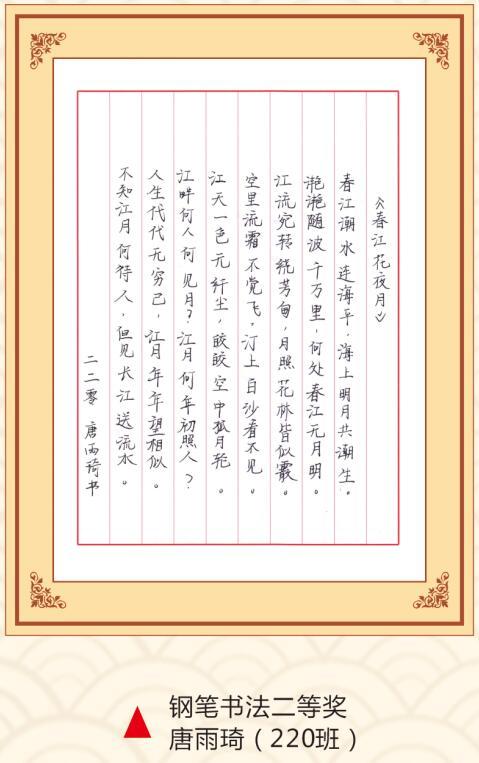 《春江花夜月》
春江潮水连海平,海上明月共潮生。
滟滟随波千万里,何处春江无月明。
江流宛转绕芳甸,月照花林皆似霰。
空里流霜不觉飞,汀上白沙看不见。
江天一色无纤尘,皎皎空中孤月轮。
江畔何人何见月?江月何年初照人?
人生代代无穷已,江月年年望相似。
不知江月何待人,但见长江送流水。
二二零 唐雨琦书
▲ 钢笔书法二等奖
唐雨琦（220班）